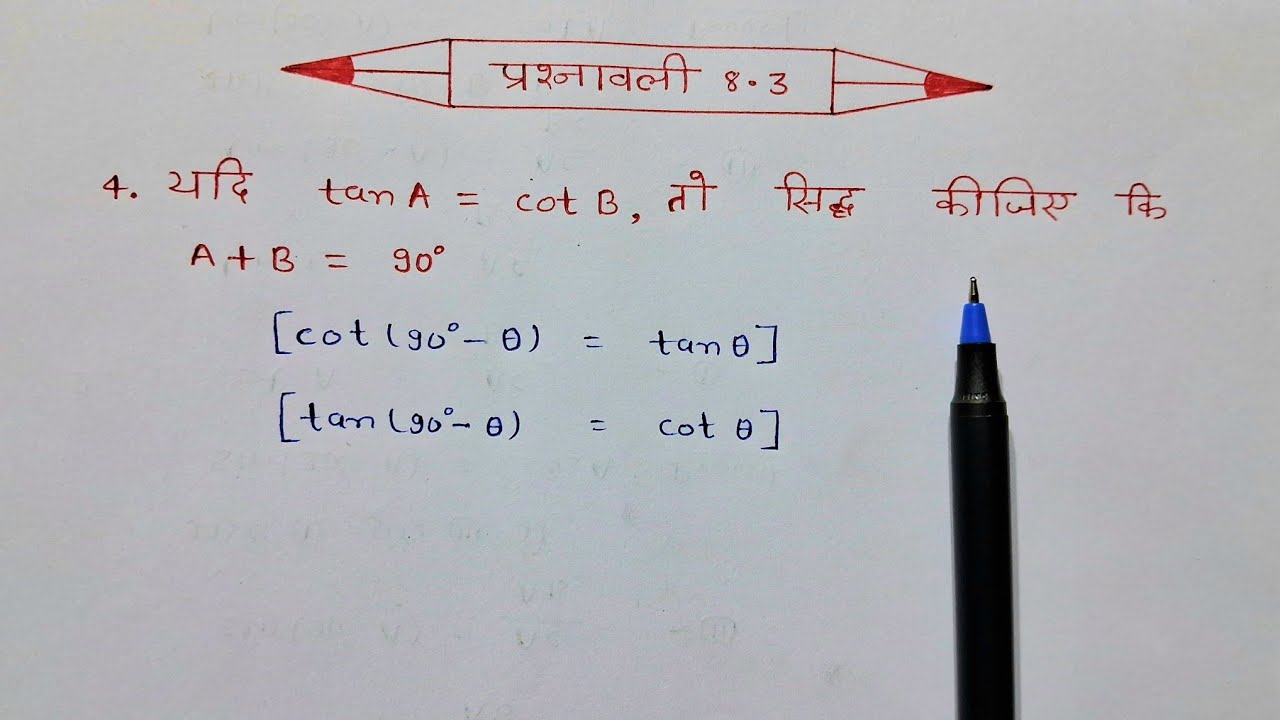 प्रश्नावली 8.3
4. यदि tan A = cot B, तो सिद्ध कीजिए कि
A + B = 90°
[cot (90° - θ) = tan θ]
[tan (90° - θ) = cot θ]